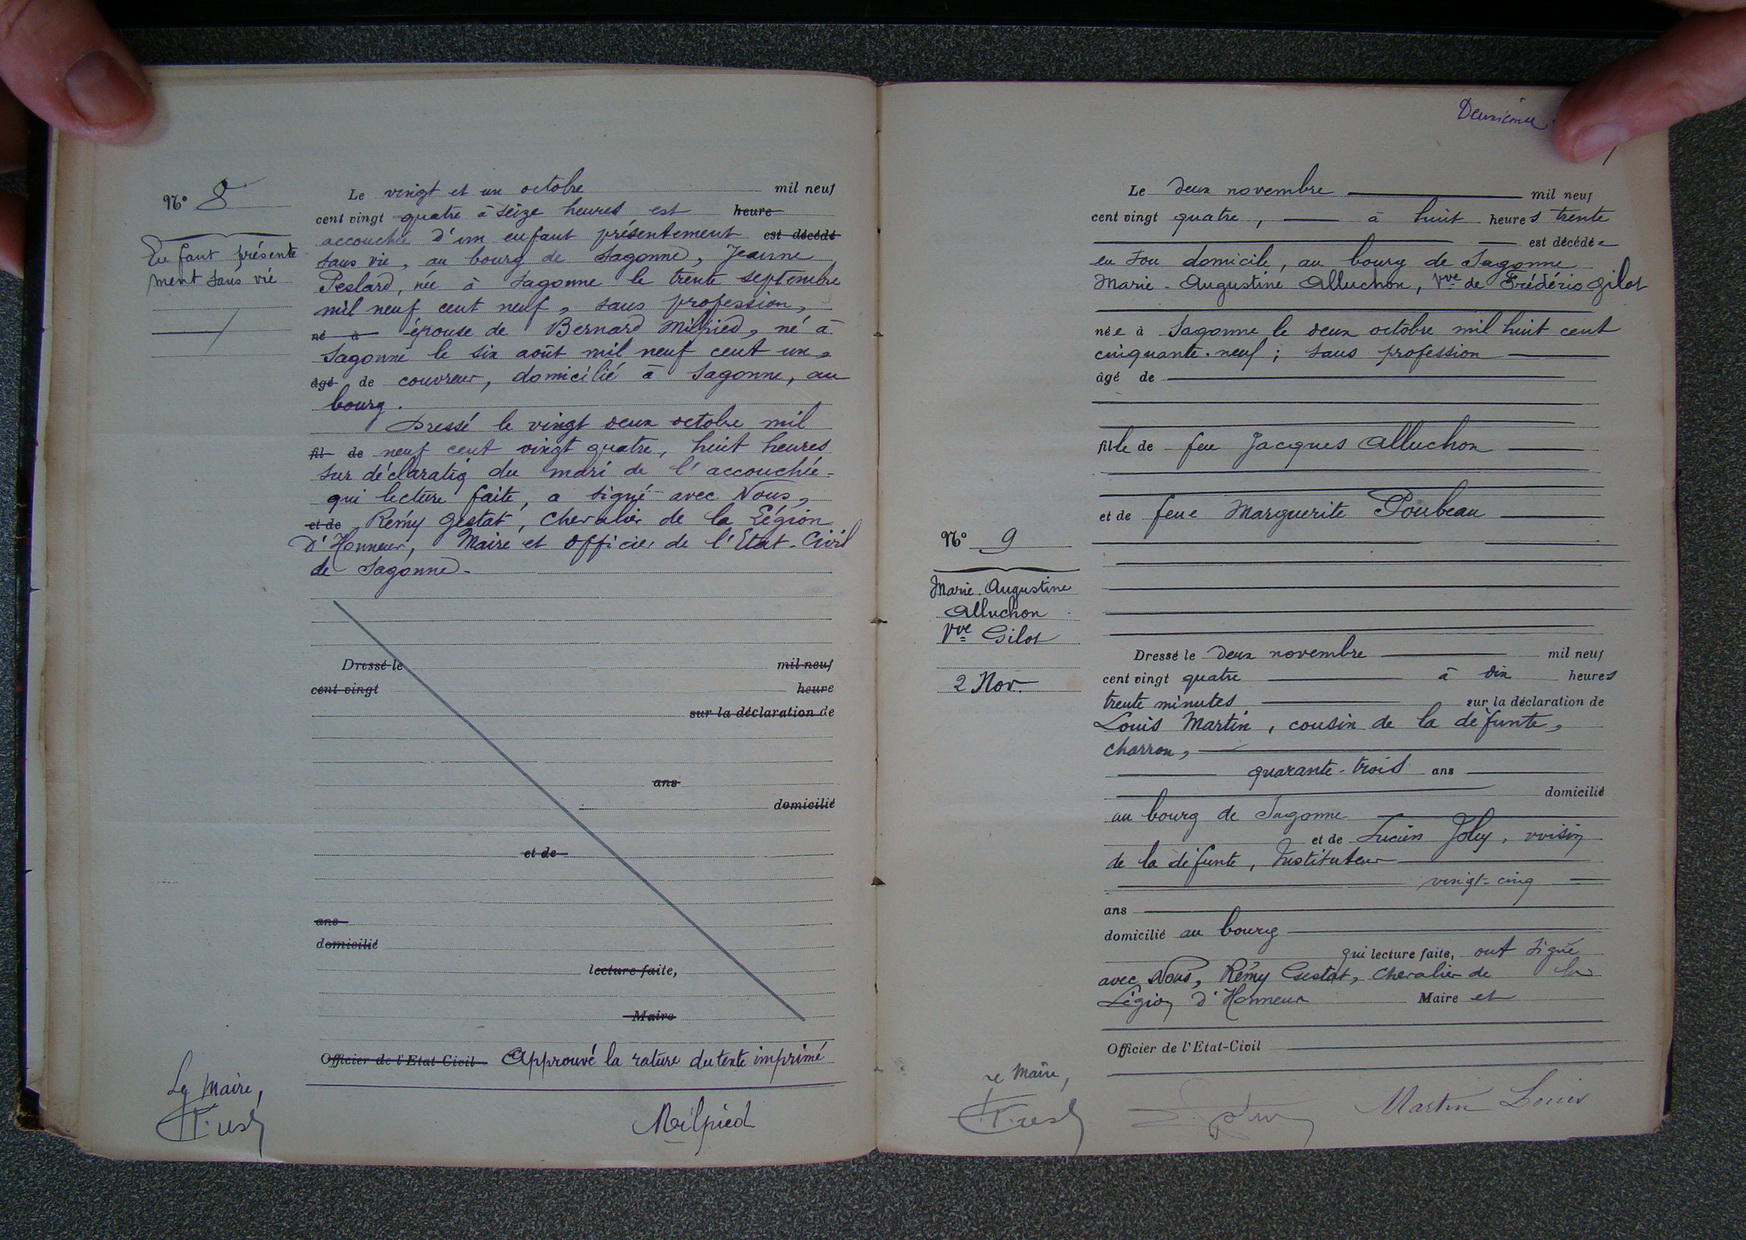 N° 8
Enfant présente
ment sans vie
Le vingt et un octobre mil neuf
cent vingt quatre à seize heures est heure
accouchée d'un enfant présentement est décédé
sans vie, au bourg de Sagonne, Jeanne
Peslard, née à Sagonne le trente septembre
mil neuf cent neuf, sans profession,
né à épouse de Bernard Milpied, né à
Sagonne le six août mil neuf cent un,
âgé de couvreur, domicilié à Sagonne, au
bourg.
Dressé le vingt deux octobre mil
fil de neuf cent vingt quatre, huit heures
sur déclaration du mari de l'accouchée
qui lecture faite, a signé avec Nous,
et de Rémy Gestat, chevalier de la Légion
d'Honneur, Maire et Officier de l'Etat-Civil
de Sagonne.
Dressé le mil neuf
cent vingt heure
sur la déclaration de
ans
domicilié
et de
ans
domicilié
lecture faite,
Maire
Officier de l'Etat-Civil Approuvé la rature du texte imprimé
Le Maire,
Milpied
Deuxième
N° 9
Marie-Augustine
Alluchon
Vve Gilot
2 Nov.
Le deux novembre mil neuf
cent vingt quatre, à huit heures trente
est décédée
en son domicile, au bourg de Sagonne
Marie-Augustine Alluchon, Vve de Frédéric Gilot
née à Sagonne le deux octobre mil huit cent
cinquante-neuf ; sans profession
âgé de
fille de feu Jacques Alluchon
et de feue Marguerite Poubeau
Dressé le deux novembre mil neuf
cent vingt quatre à dix heures
trente minutes sur la déclaration de
Louis Martin, cousin de la défunte,
charron,
quarante-trois ans
domicilié
au bourg de Sagonne
et de Lucien Joly, voisin
de la défunte, Instituteur
vingt-cinq
ans
domicilié au bourg
qui lecture faite, ont signé
avec Nous, Rémy Gestat, chevalier de la
Légion d'Honneur Maire et
Officier de l'Etat-Civil
Le Maire,
Martin Louis